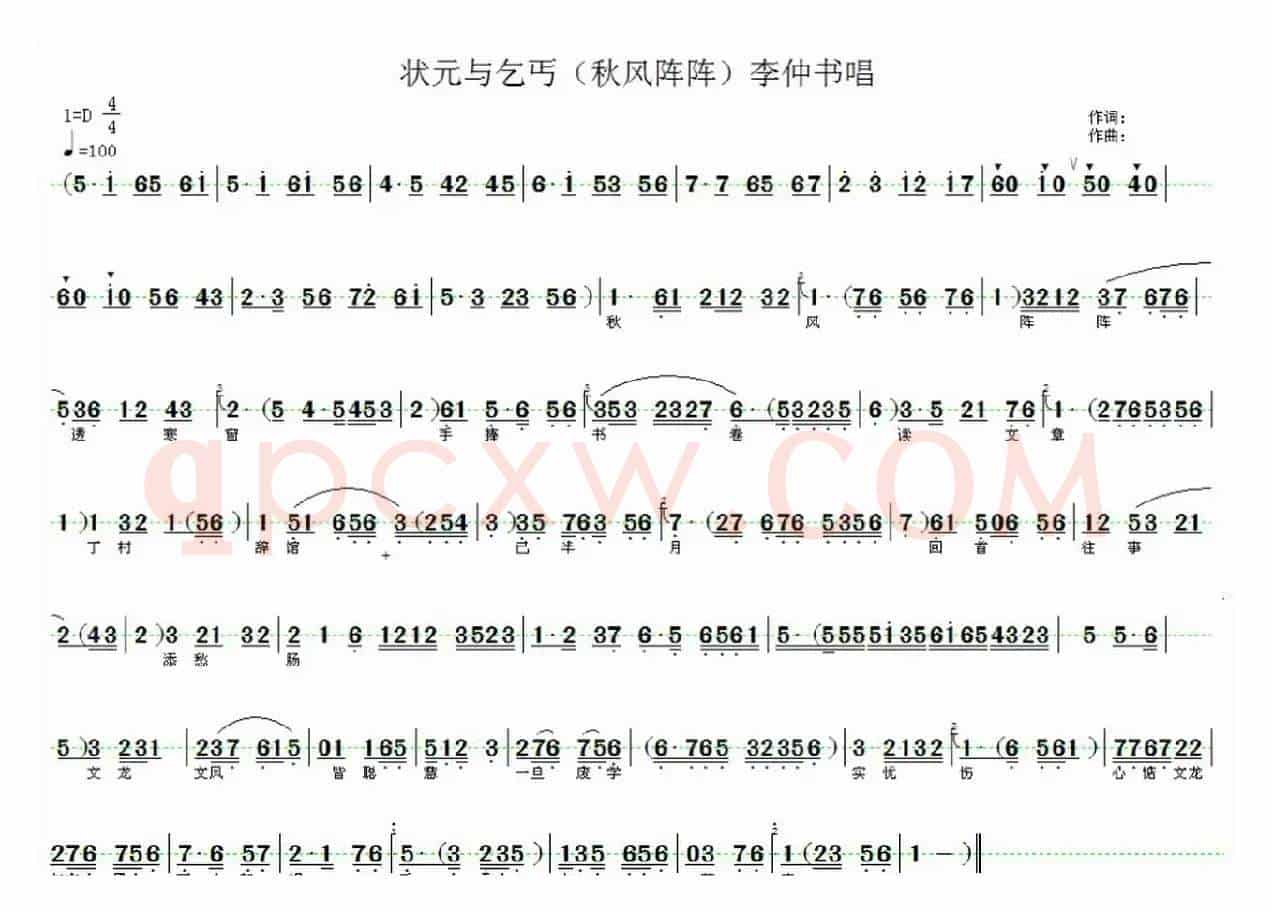 状元与乞丐（秋风阵阵）李仲书唱
1=D 4/4
♩=100
作词：
作曲：
(5· i 65 6i | 5· i 6i 56 | 4· 5 42 45 | 6· i 53 56 | 7· 7 65 67 | 2· 3 i2 i7 | 60 i0 V 50 40 |
60 i0 56 43 | 2·3 56 72 6i | 5·3 23 56 ) | 1· 61 212 32 | 1· (76 56 76 | 1 ) 3212 37 676 |
秋 风 阵 阵
536 12 43 | 2· (5 4·5453 | 2 ) 61 5·6 56 | 353 2327 6·(53235 | 6 ) 3·5 21 76 | 1· (2765356 |
透 寒 留 手 捧 书 卷 读 文 章
1 ) 1 32 1(56 ) | 1 51 656 3(254 | 3 ) 35 763 56 | 7· (27 676 5356 | 7 ) 61 506 56 | 12 53 21
丁 村 辞 馆 已 半 月 回 首 往 事
2(43 | 2 ) 3 21 32 | 2 1 6 1212 3523 | 1·2 37 6·5 6561 | 5· (5555i356i654323 | 5 5·6 |
添 愁 肠
5 ) 3 231 | 237 615 | 01 165 | 512 3 | 276 756 | (6·765 32356 ) | 3 2132 | 1· (6 561 ) | 776722 |
文 龙 文凤 皆 聪 慧 一旦 废 学 实 忧 伤 心 惦 文龙
276 756 | 7·6 57 | 2·1 76 | 5· (3 235 ) | 135 656 | 03 76 | 1(23 56 | 1 — ) ‖
qpcxw.COM